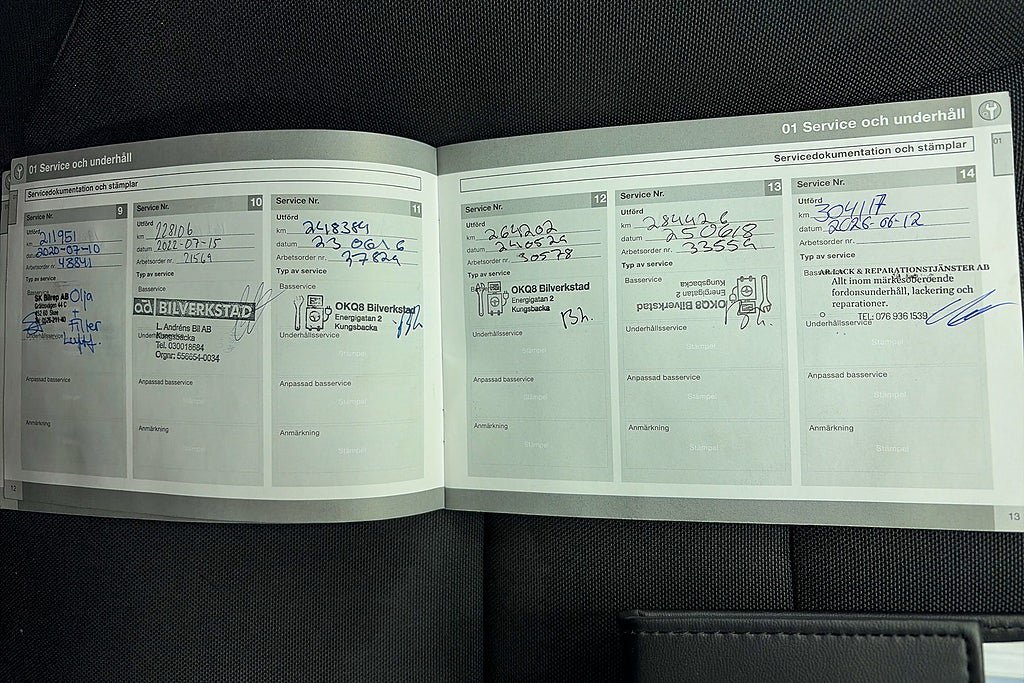 01 Service och underhåll
Servicedokumentation och stämplar
Service Nr. 9
Utförd
km 211951
datum 2020-07-10
Arbetsorder nr. 48841
Typ av service
Basservice
SK Bilrep AB
Olja
+
Filter
Luft.
Underhållsservice
Anpassad basservice
Stämpel
Anmärkning
12
Service Nr. 10
Utförd
km 228106
datum 2022-07-15
Arbetsorder nr. 71569
Typ av service
Basservice
ad BILVERKSTAD
L. Andréns Bil AB
Kungsbacka
Tel. 030018584
Orgnr: 556654-0034
Anpassad basservice
Stämpel
Anmärkning
Stämpel
Service Nr. 11
Utförd
km 248384
datum 230616
Arbetsorder nr. 37829
Typ av service
Basservice
OKQ8 Bilverkstad
Energigatan 2
Kungsbacka
Underhållsservice
Stämpel
Anpassad basservice
Stämpel
Anmärkning
Stämpel
01 Service och underhåll
01
Servicedokumentation och stämplar
Service Nr. 12
Utförd
km 264202
datum 240529
Arbetsorder nr. 30578
Typ av service
Basservice
OKQ8 Bilverkstad
Energigatan 2
Kungsbacka
Underhållsservice
Stämpel
Anpassad basservice
Stämpel
Anmärkning
Stämpel
Service Nr. 13
Utförd
km 284426
datum 250618
Arbetsorder nr. 33559
Typ av service
Basservice
OKQ8 Bilverkstad
Energigatan 2
Kungsbacka
Underhållsservice
Stämpel
Anpassad basservice
Stämpel
Anmärkning
Stämpel
Service Nr. 14
Utförd
km 304117
datum 2026-06-12
Arbetsorder nr.
Typ av service
Basservice
AR LACK & REPARATIONSTJÄNSTER AB
Allt inom märkesoberoende
fordonsunderhåll, lackering och
reparationer.
TEL: 076 936 1539
Underhållsservice
Stämpel
Anpassad basservice
Stämpel
Anmärkning
Stämpel
13